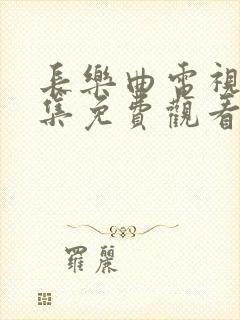 長樂曲電視
集免費觀看
羅麗